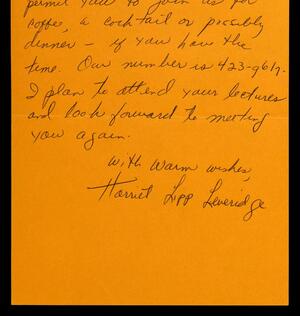 permit you to join us for
coffee, a cocktail or possibly
dinner – if you have the
time. Our number is 423-9617.
I plan to attend your lectures
and look forward to meeting
you again.
With warm wishes,
Harriet Lipp Leveridge